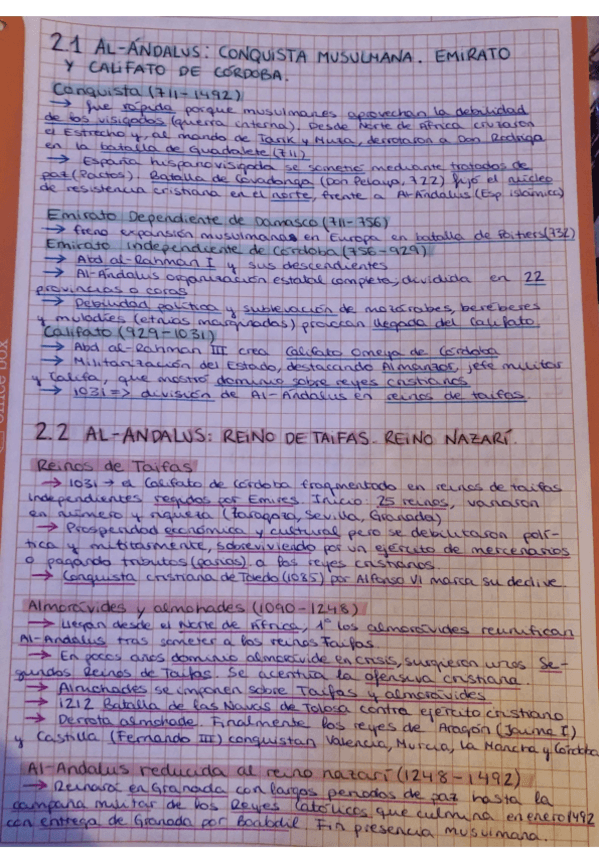 2.1 AL-ÁNDALUS: CONQUISTA MUSULMANA. EMIRATO
Y CALIFATO DE CÓRDOBA.
Conquista (711-1492)
→ Fue rápida porque musulmanes aprovechan la debilidad
de los visigodos (guerra interna). Desde Norte de África cruzaron
el Estrecho y, al mando de Tarik y Muza, derrotaron a Don Rodrigo
en la batalla de Guadalete (711)
→ España hispanovisigoda se sometió mediante tratados de
paz (Pactos). Batalla de Covadonga (Don Pelayo, 722) fijó el núcleo
de resistencia cristiana en el norte, frente a Al-Andalus (Esp islámica)
Emirato Dependiente de Damasco (711-756)
→ freno expansión musulmanas en Europa en batalla de Poitiers (732)
Emirato Independiente de Córdoba (756-929)
→ Abd al-Rahman I y sus descendientes
→ Al-Andalus organización estatal completa, dividida en 22
provincias o coras.
→ Debilidad política y sublevación de mozárabes, beréberes
y muladíes (etnias marginadas) provocan llegada del Califato.
Califato (929-1031)
→ Abd al-Rahman III crea Califato Omeya de Córdoba
→ Militarización del Estado, destacando Almanzor, jefe militar
y Califa, que mostró dominio sobre reyes cristianos
→ 1031 => división de Al-Andalus en reinos de taifas.
2.2 AL-ANDALUS: REINO DE TAIFAS. REINO NAZARÍ.
Reinos de Taifas
→ 1031 → el Califato de Córdoba fragmentado en reinos de taifas
independientes regidos por Emires. Inicio: 25 reinos, variaron
en número y riqueza (Zaragoza, Sevilla, Granada)
→ Prosperidad económica y cultural pero se debilitaron polí-
tica y militarmente, sobreviviendo por un ejército de mercenarios
o pagando tributos (parias) a los reyes cristianos.
→ Conquista cristiana de Toledo (1085) por Alfonso VI marca su declive.
Almorávides y almohades (1090-1248)
→ Llegan desde el Norte de África, 1º los almorávides reunifican
Al-Andalus tras someter a los reinos Taifas.
→ En pocos años dominio almorávide en crisis, surgieron unos Se-
gundos Reinos de Taifas. Se acentúa la ofensiva cristiana.
→ Almohades se imponen sobre Taifas y almorávides
→ 1212 Batalla de las Navas de Tolosa contra ejército cristiano
→ Derrota almohade. Finalmente los reyes de Aragón (Jaume I)
y Castilla (Fernando III) conquistan Valencia, Murcia, la Mancha y Córdoba
Al-Andalus reducida al reino nazarí (1248-1492)
→ Reinaron en Granada con largos periodos de paz hasta la
campaña militar de los Reyes Católicos que culmina en enero 1492
con entrega de Granada por Boabdil. Fin presencia musulmana.